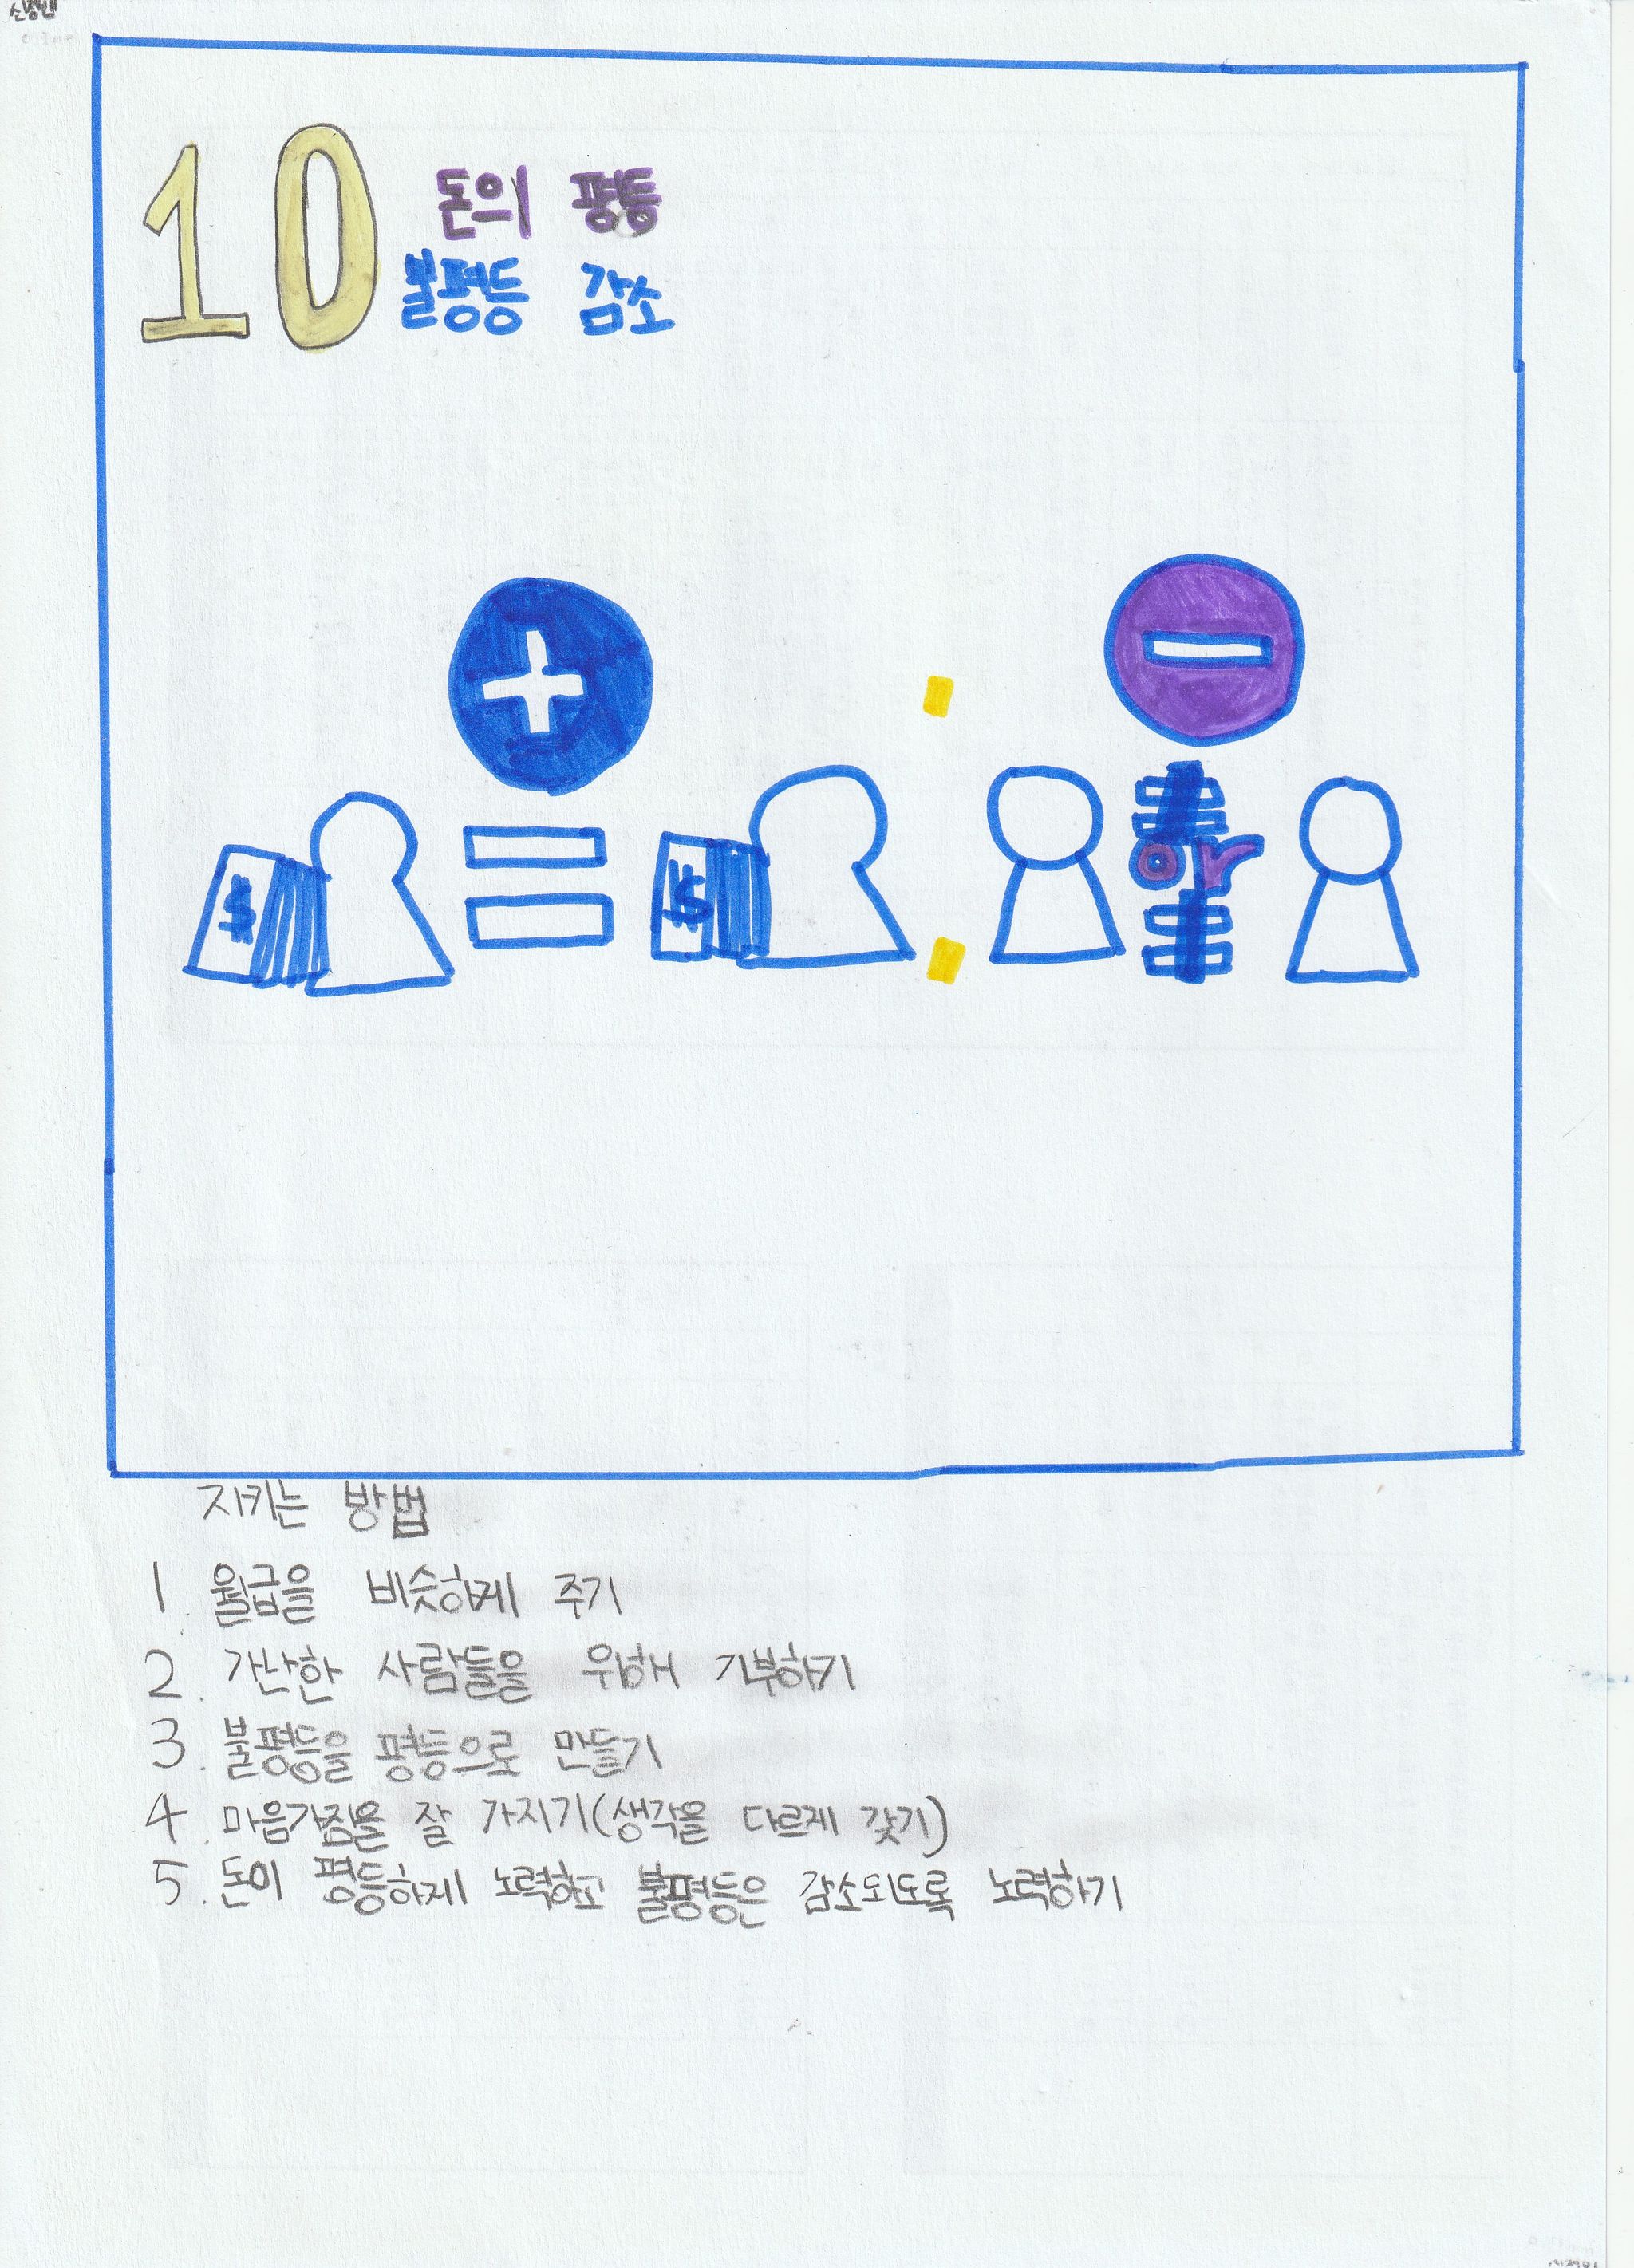 10 돈의 평등
불평등 감소
$ $ or
지키는 방법
1. 월급을 비슷하게 주기
2. 가난한 사람들을 위해 기부하기
3. 불평등을 평등으로 만들기
4. 마음가짐을 잘 가지기(생각을 다르게 갖기)
5. 돈이 평등하게 노력하고 불평등은 감소되도록 노력하기